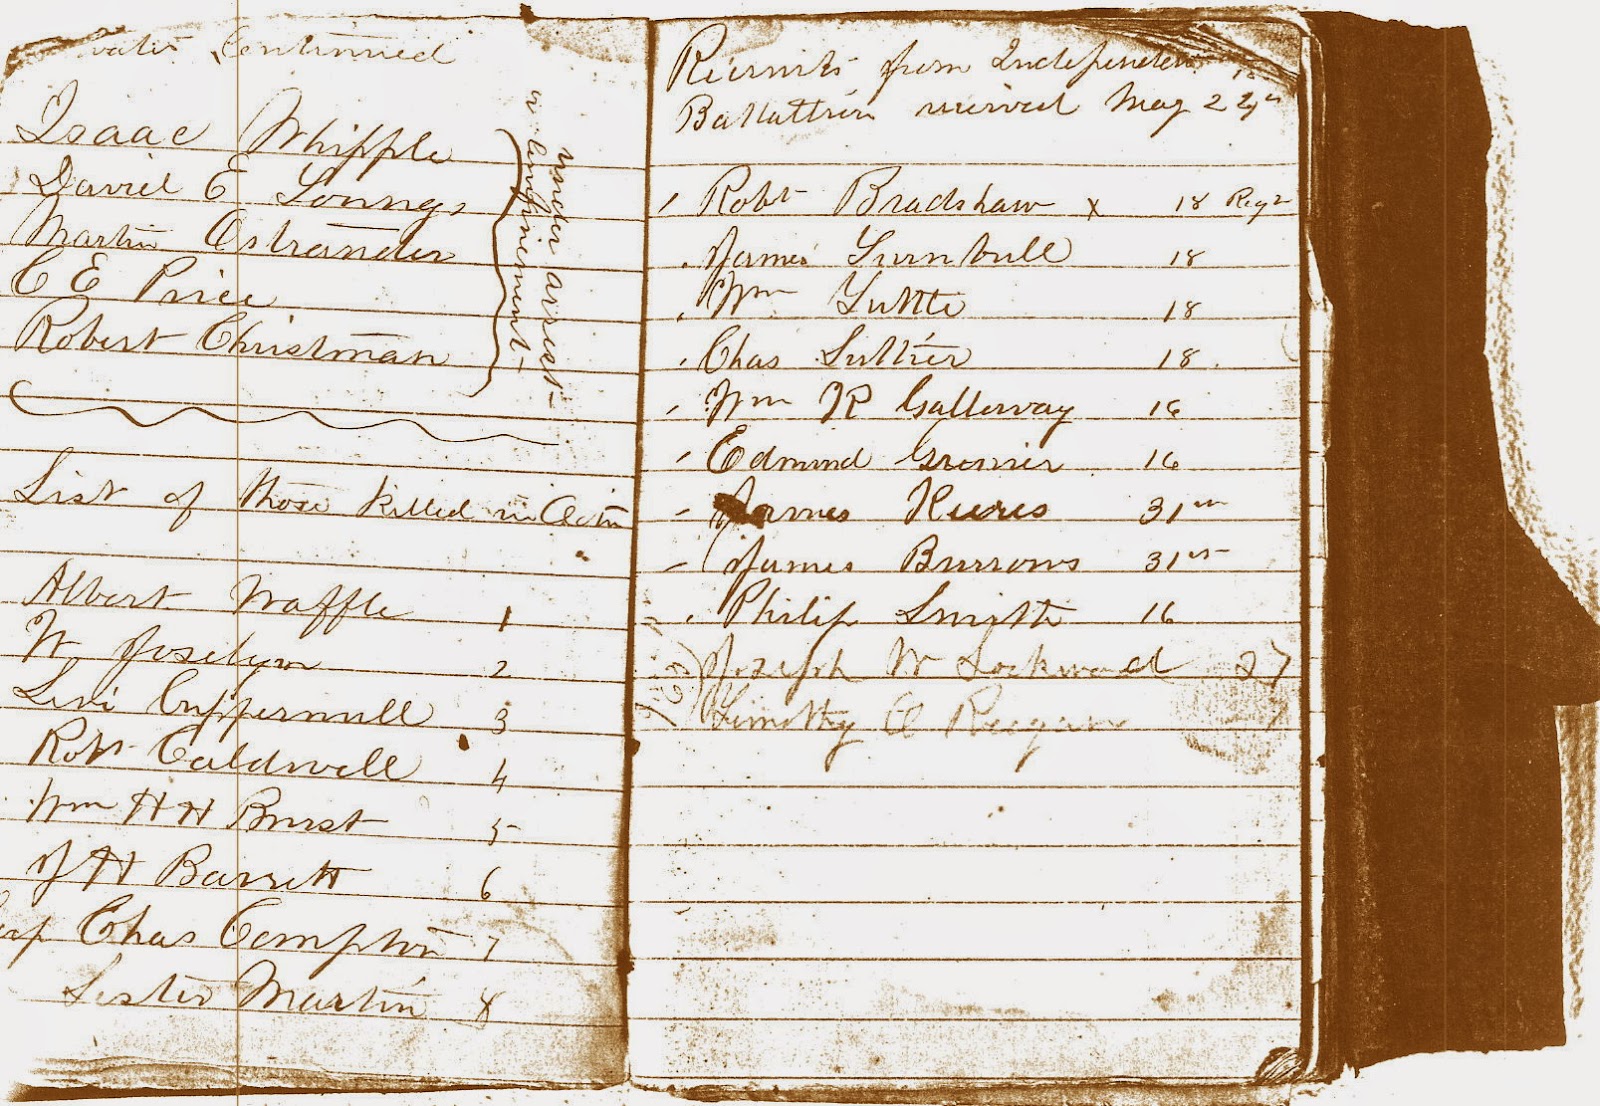 Continued
Isaac Whipple
David E Youngs
Martin Ostrander
C E Price
Robert Christman
under arrest
or confinement
List of those killed in Action
Albert Waffle 1
W Joselyn 2
Levi Cuppernull 3
Robt Caldwell 4
Wm H H Burst 5
J H Barrett 6
Corp Chas Compton 7
Lester Martin 8
Recruits from Independent
Battallion received May 22
Robt Bradshaw x 18 Regt
James Turnbull 18
Wm Tuttle 18
Chas Luther 18
Wm R Galloway 16
Edmund 16
James 31st
James Burrows 31st
Philip Smith 16
Joseph W Lockwood 27
Timothy O Reegan